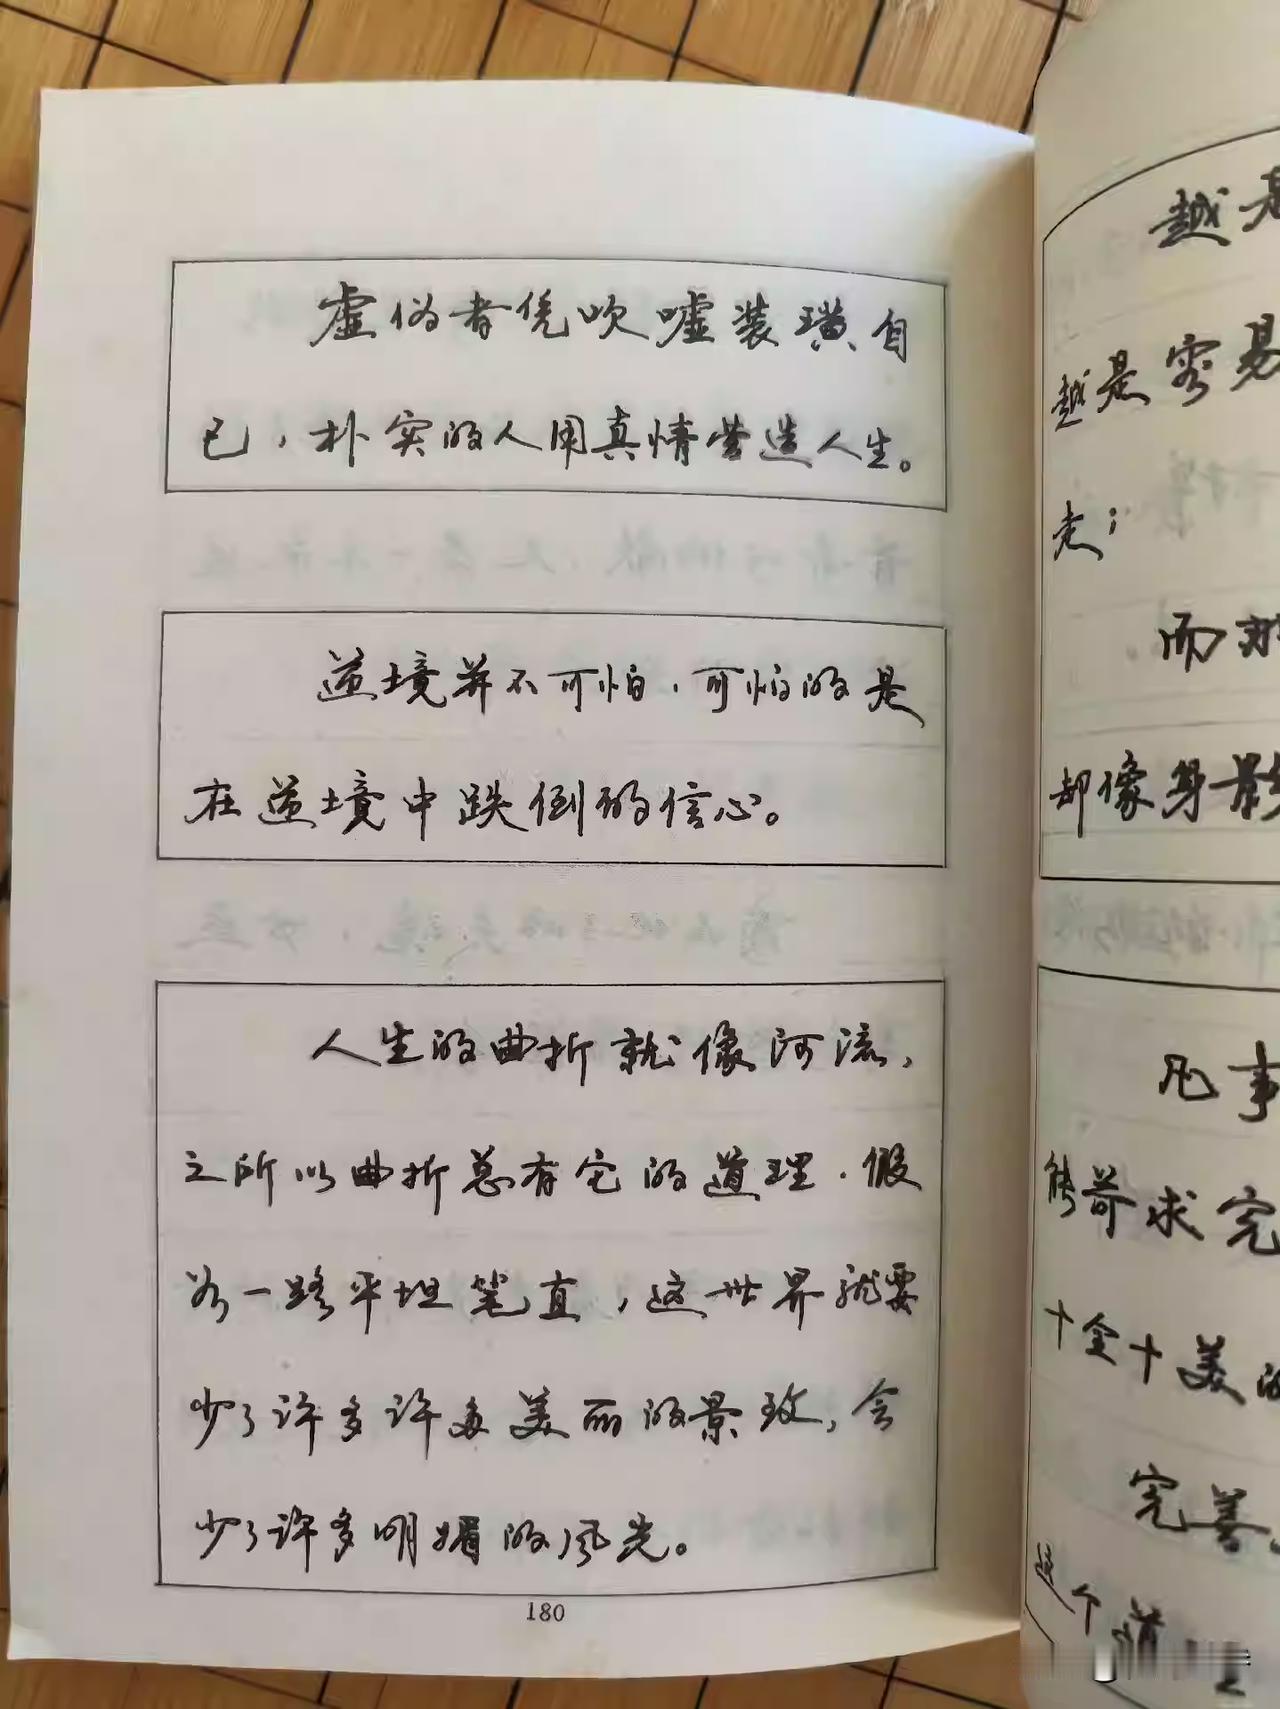 虚伪者凭吹嘘装璜自
己，朴实的人用真情营造人生。
逆境并不可怕，可怕的是
在逆境中跌倒的信心。
人生的曲折就像河流，
之所以曲折总有它的道理．假
若一路平坦笔直，这世界就要
少了许多许多美丽的景致，会
少了许多明媚的风光。
180
越是
越是容易
走；
而
却像身影
凡事
能苛求完
十全十美的
完善
这个道